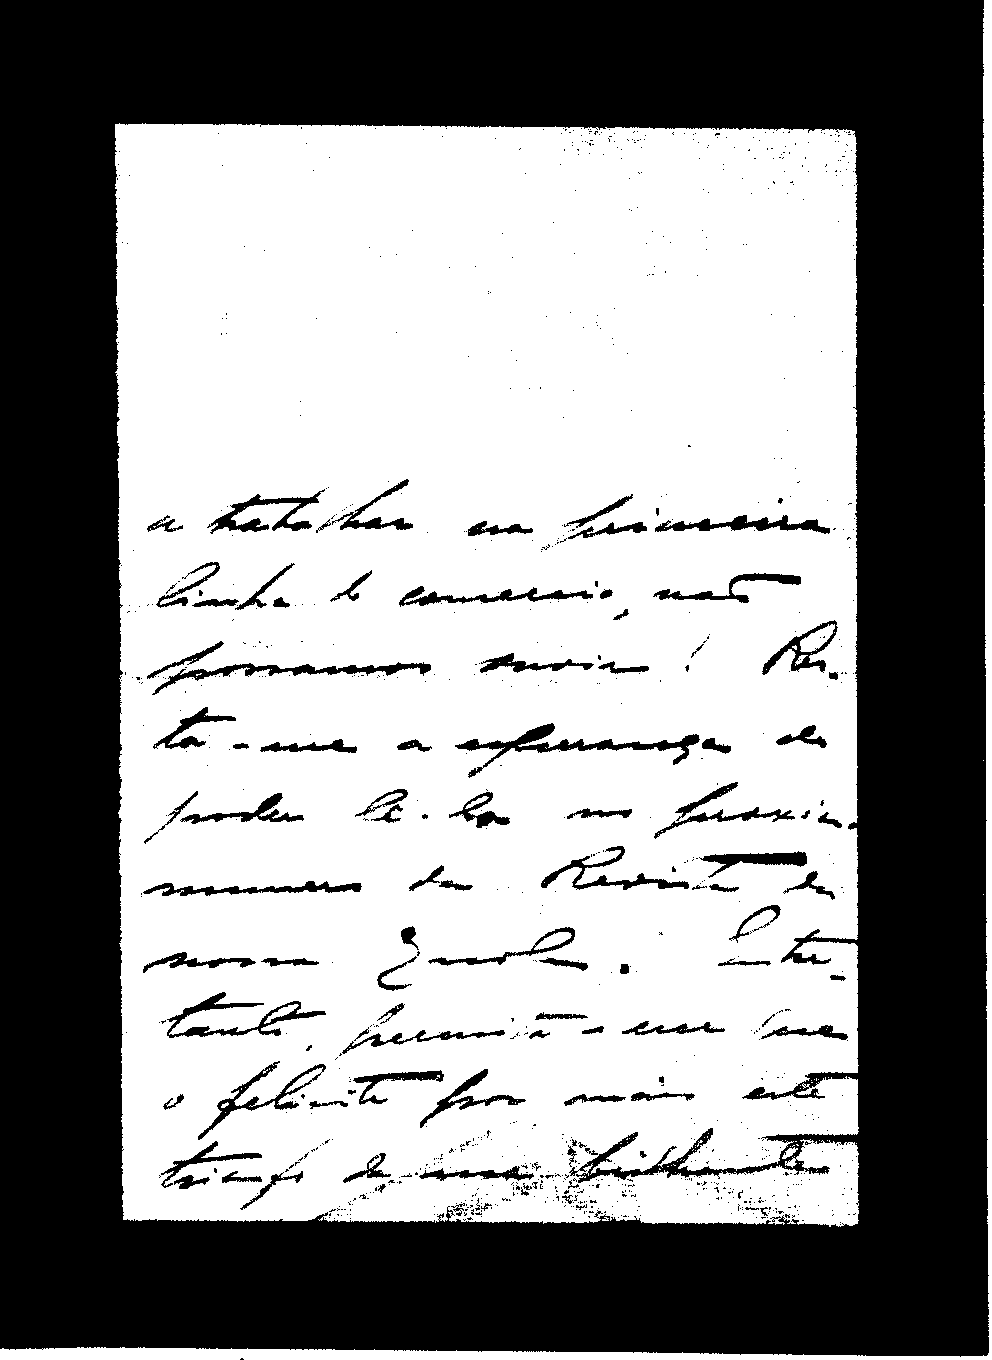 a trabalhar na primeira
linha do comercio, não
possamos ouvir! Res-
ta-me a esperança de
poder lê-la no proximo
numero da Revista da
nossa Escola. Entre-
tanto, permita-me que
o felicite por mais este
triunfo da sua brilhante